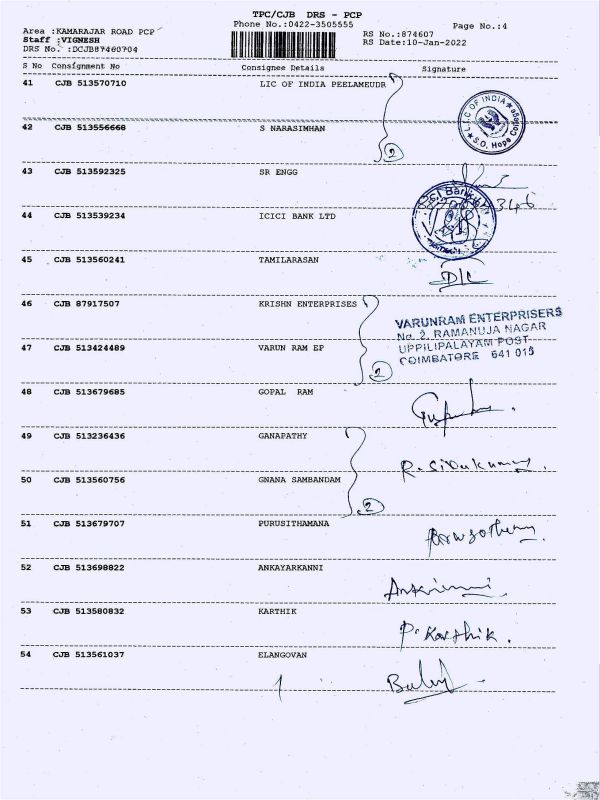 TPC/CJB DRS - PCP
Phone No.:0422-3505555
Page No.:4
Area :KAMARAJAR ROAD PCP
RS No.:874607
Staff :VIGNESH
RS Date:10-Jan-2022
DRS No. :DCJB87460704
S No Consignment No Consignee Details Signature
41 CJB 513570710 LIC OF INDIA PEELAMEUDR
L.I.C OF INDIA
S.O. Hope
42 CJB 513556668 S NARASIMHAN
2
43 CJB 513592325 SR ENGG
346
44 CJB 513539234 ICICI BANK LTD
45 CJB 513560241 TAMILARASAN
D/C
46 CJB 87917507 KRISHN ENTERPRISES
VARUNRAM ENTERPRISERS
No. 2, RAMANUJA NAGAR
47 CJB 513424489 VARUN RAM EP
UPPILIPALAYAM POST
COIMBATORE 641 015
2
48 CJB 513679685 GOPAL RAM
49 CJB 513236436 GANAPATHY
R. Sivakumar.
50 CJB 513560756 GNANA SAMBANDAM
2
51 CJB 513679707 PURUSITHAMANA
52 CJB 513698822 ANKAYARKANNI
53 CJB 513580832 KARTHIK
P. Karthik.
54 CJB 513561037 ELANGOVAN
1